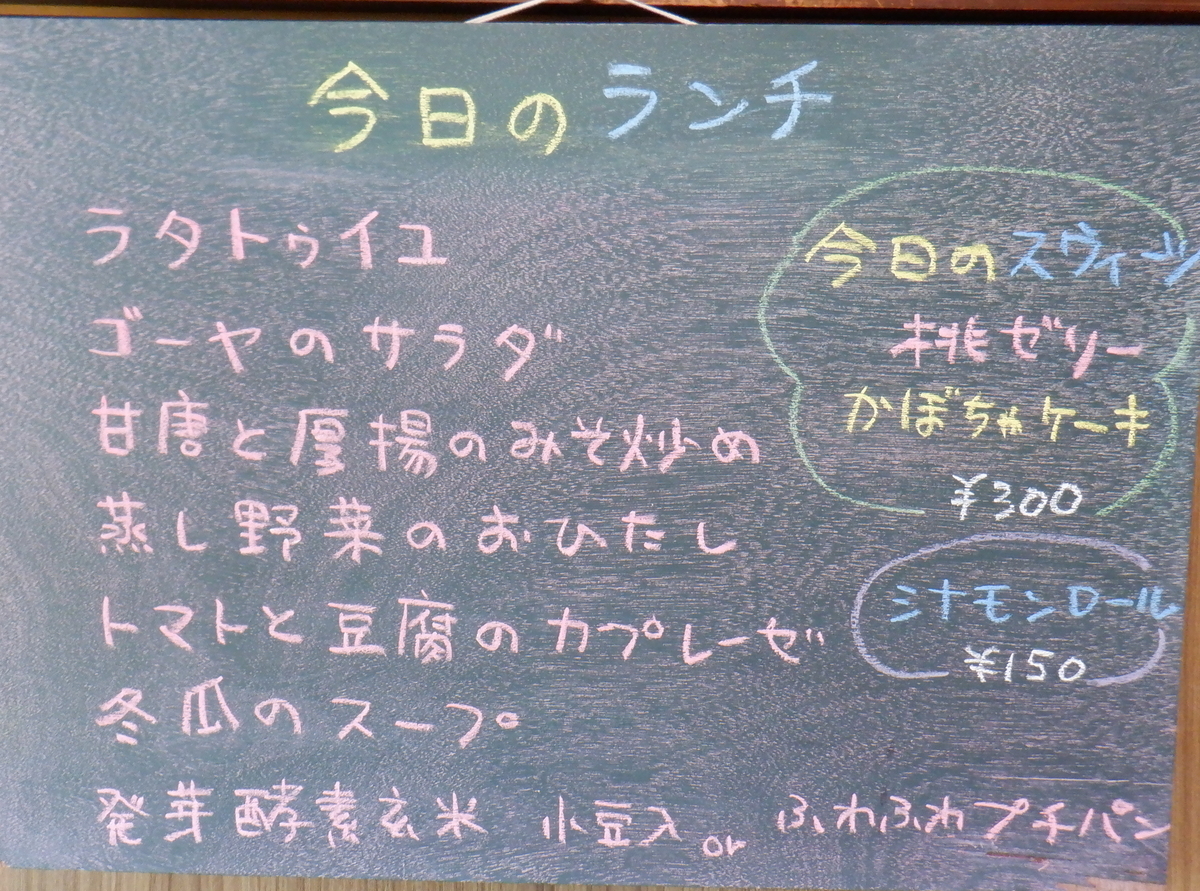 今日のランチ
ラタトゥイユ
ゴーヤのサラダ
甘唐と厚揚のみそ炒め
蒸し野菜のおひたし
トマトと豆腐のカプレーゼ
冬瓜のスープ
発芽酵素玄米 小豆入 or ふわふわプチパン
今日のスウィーツ
桃ゼリー
かぼちゃケーキ
¥300
シナモンロール
¥150